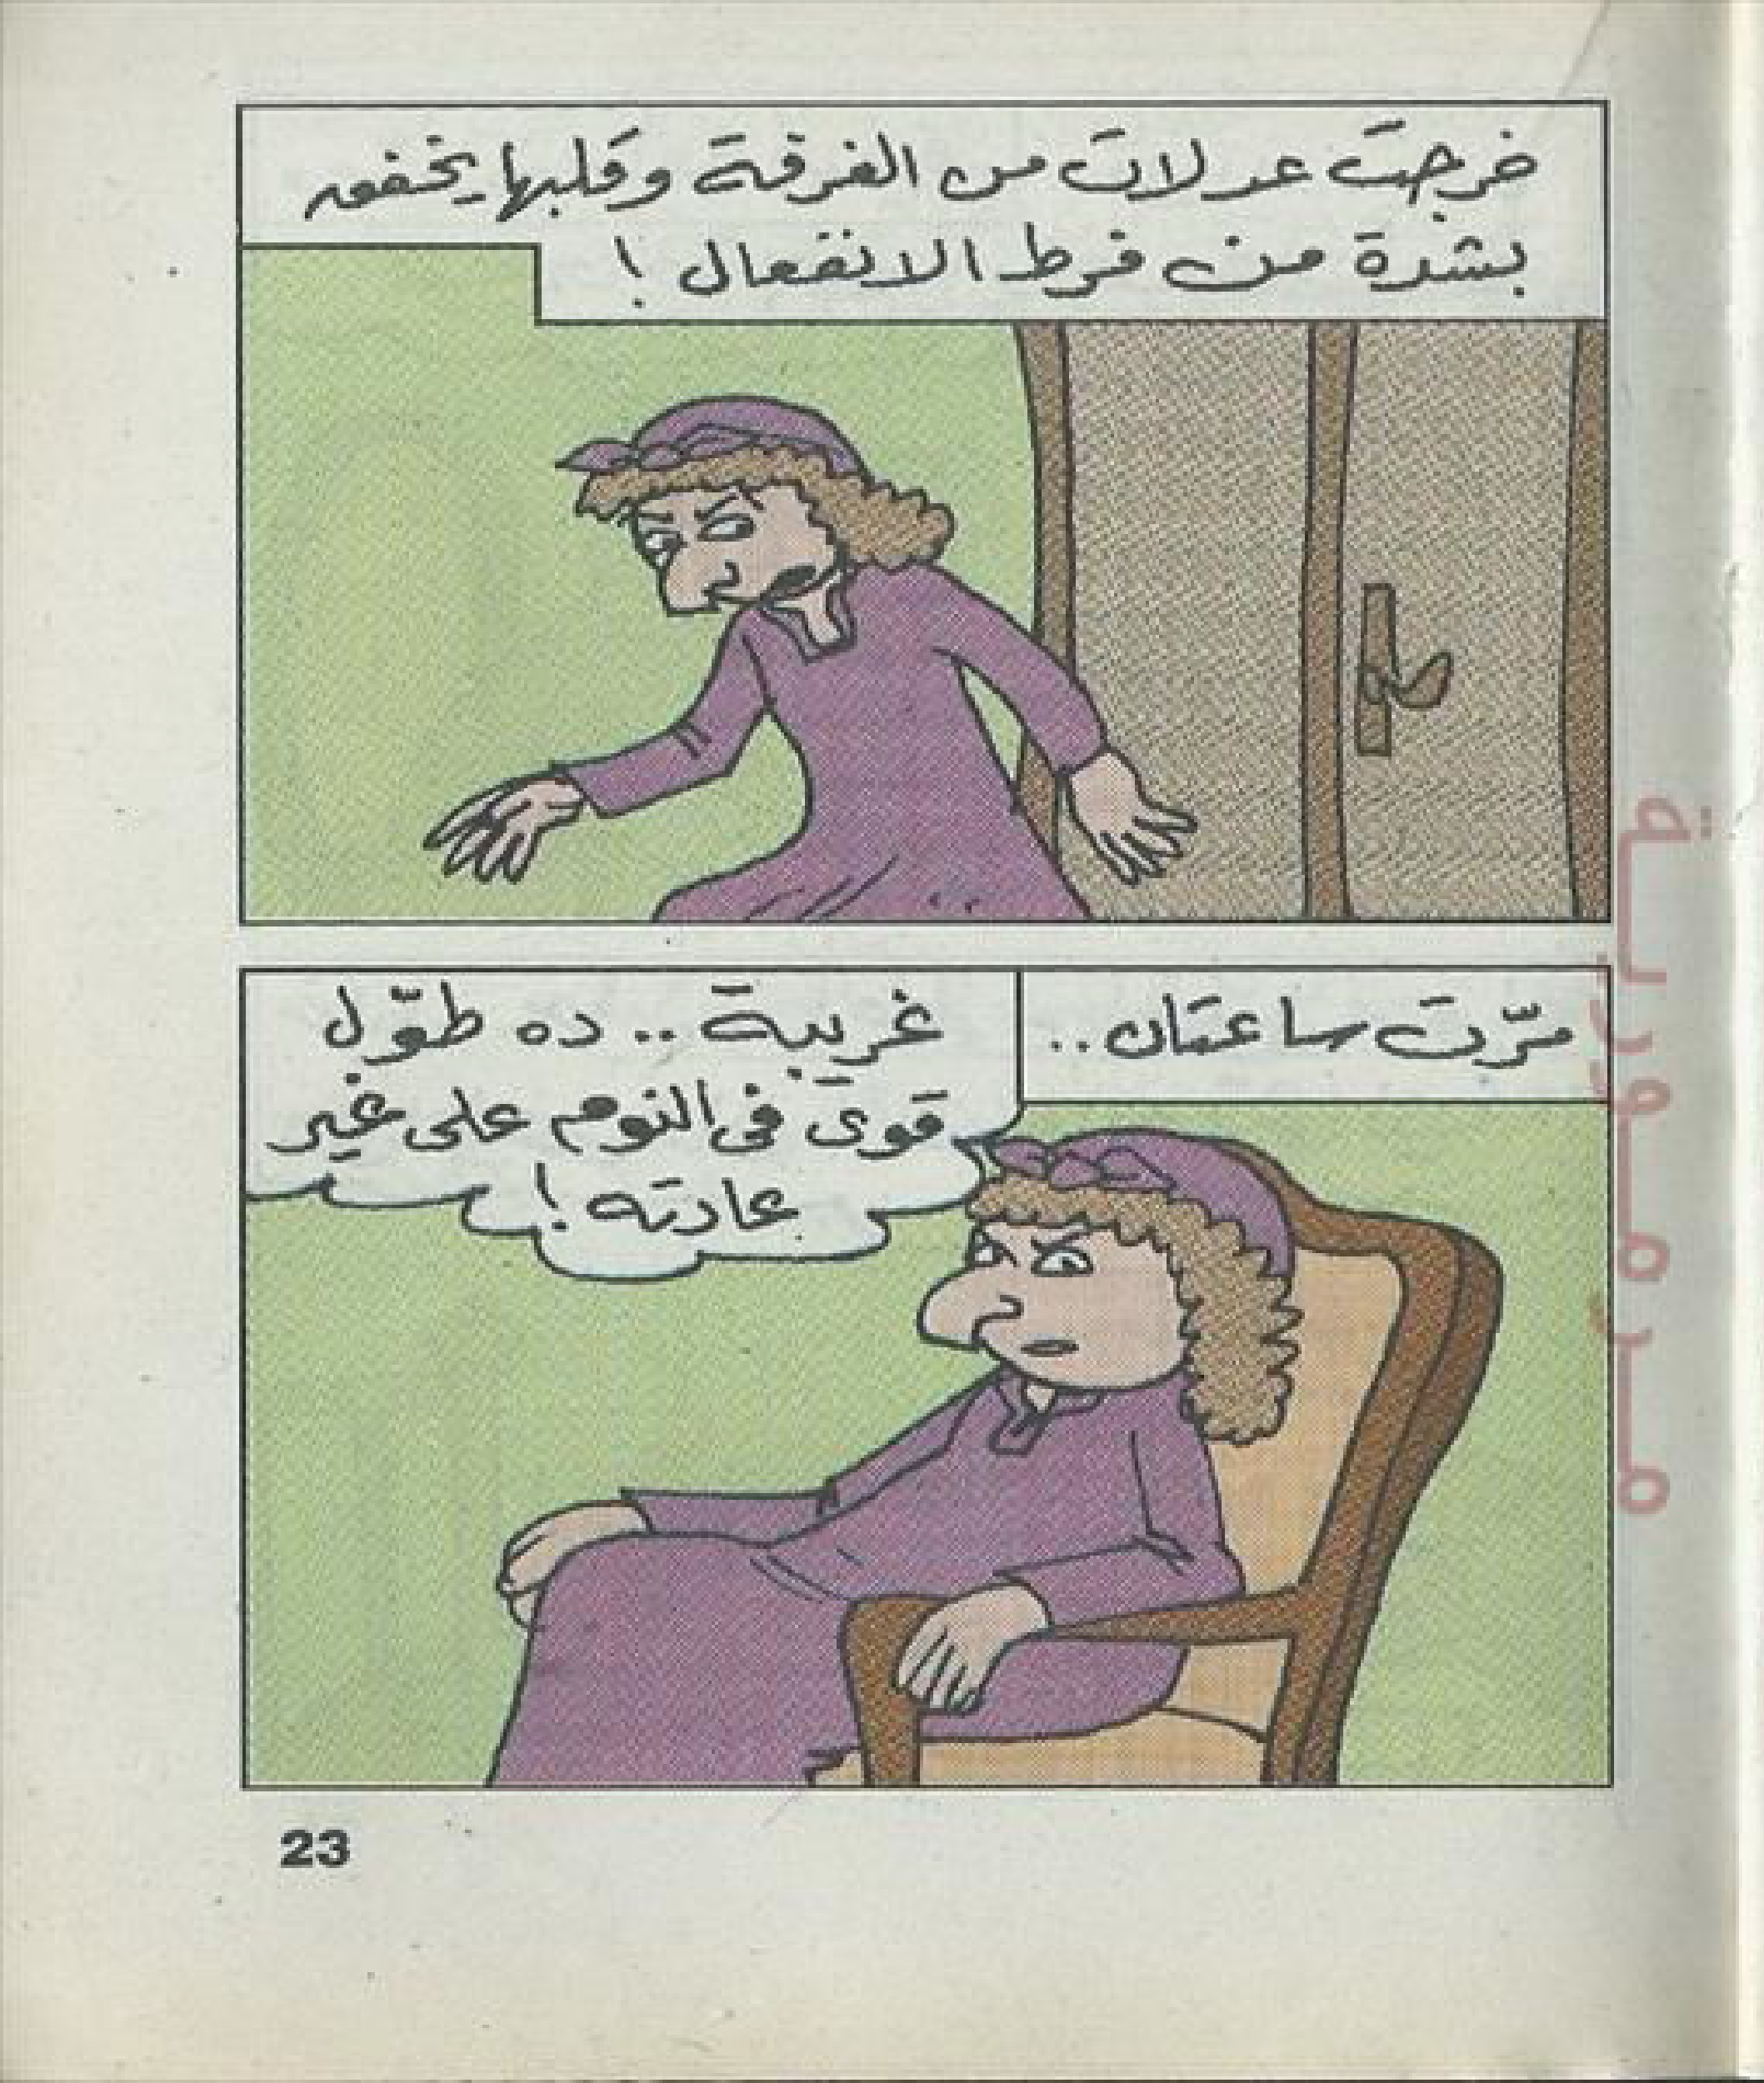 خرجت عدلات من الغرفة وقلبها يخفق
بشدة من فرط الانفعال !
مرّت ساعتان ..
غريبة .. ده طوّل
قوى فى النوم على غير
عادته !
23
مدرمورية